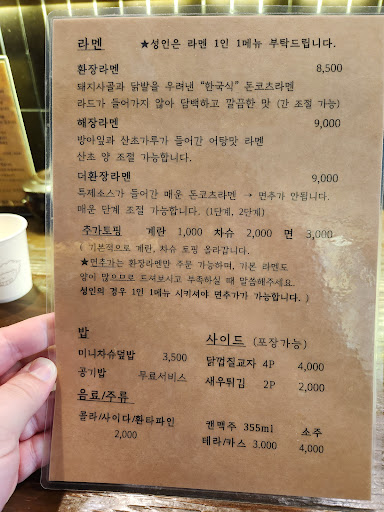 라멘 ★성인은 라멘 1인 1메뉴 부탁드립니다.
환장라멘 8,500
돼지사골과 닭발을 우려낸 "한국식" 돈코츠라멘
라드가 들어가지 않아 담백하고 깔끔한 맛 (간 조절 가능)
해장라멘 9,000
방아잎과 산초가루가 들어간 어탕맛 라멘
산초 양 조절 가능합니다.
더환장라멘 9,000
특제소스가 들어간 매운 돈코츠라멘 → 면추가 안됩니다.
매운 단계 조절 가능합니다. (1단계, 2단계)
추가토핑 계란 1,000 차슈 2,000 면 3,000
( 기본적으로 계란, 차슈 토핑 올라갑니다.
★면추가는 환장라면만 주문 가능하며, 기본 라멘도
양이 많으므로 드셔보시고 부족하실 때 말씀해주세요.
성인의 경우 1인 1메뉴 시키셔야 면추가가 가능합니다. )
밥
미니차슈덮밥 3,500
공기밥 무료서비스
사이드 (포장가능)
닭껍질교자 4P 4,000
새우튀김 2P 2,000
음료/주류
콜라/사이다/환타파인
2,000
캔맥주 355ml
테라/카스 3.000
소주
4,000